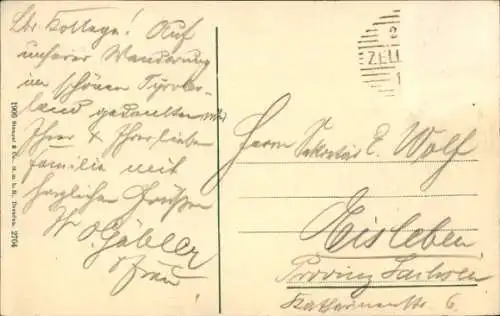 Lbr. Kollege! Auf
unserer Wanderung
im schönen Tyroler-
land gedenken wir
Ihrer & Ihrer lieben
Familie mit
herzlichen Grüßen
O. Gäbler
& Frau!
1906 Stengel & Co., G. m. b. H., Dresden. 2704
ZELL
Herrn Sekretär E. Wolf
Eisleben
Provinz Sachsen
Katharinenstr. 6.